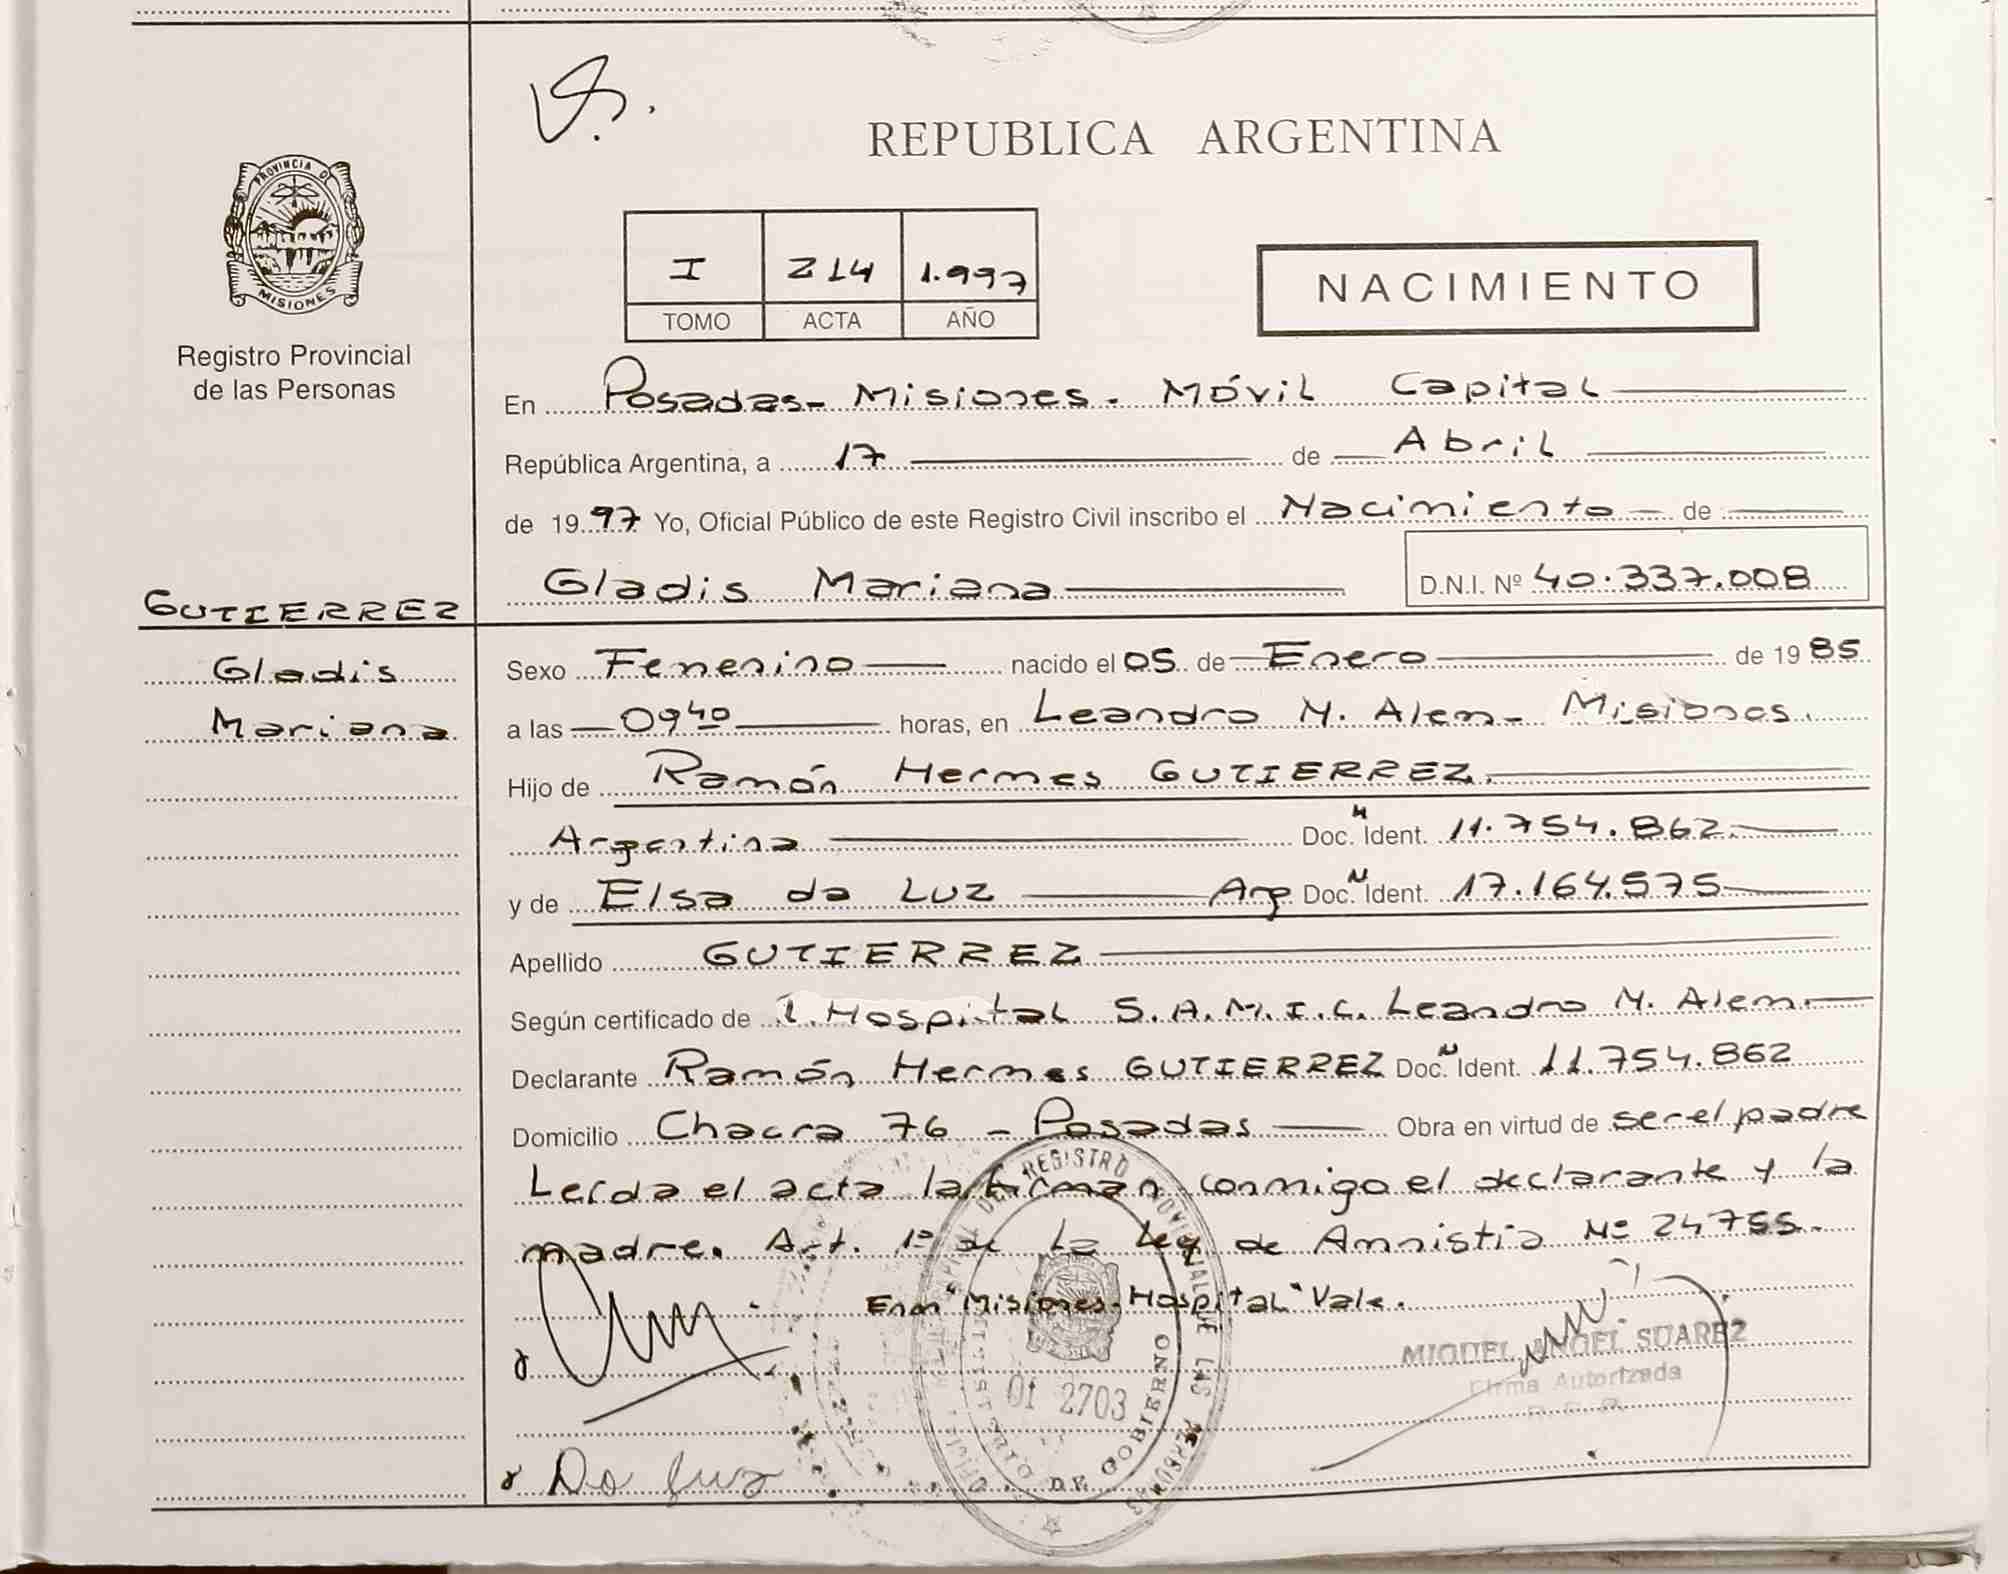 REPUBLICA ARGENTINA
PROVINCIA DE
MISIONES
Registro Provincial
de las Personas
I 214 1.997
TOMO ACTA AÑO
NACIMIENTO
En Posadas- Misiones. Móvil Capital
República Argentina, a 17 de Abril
de 1997 Yo, Oficial Público de este Registro Civil inscribo el Nacimiento de
Gladis Mariana
D.N.I. Nº 40.337.008
GUTIERREZ
Gladis
Mariana
Sexo Femenino nacido el 05 de Enero de 1985
a las 09 40 horas, en Leandro N. Alem- Misiones.
Hijo de Ramón Hermes GUTIERREZ.
Argentina Doc. N Ident. 11.754.862.
y de Elsa da LUZ Arg. Doc. N Ident. 17.164.575
Apellido GUTIERREZ
Según certificado de Hospital S.A.M.I.C. Leandro N. Alem.
Declarante Ramón Hermes GUTIERREZ Doc. N Ident. 11.754.862
Domicilio Chacra 76 - Posadas Obra en virtud de ser el padre
Leída el acta la firman conmigo el declarante y la
madre. Art. 1º de la Ley de Amnistia Nº 24755.
Enm "Misiones. Hospital" Vale.
MIGUEL ANGEL SUAREZ
Firma Autorizada
Da Luz
REGISTRO PROVINCIAL DE LAS PERSONAS
MINISTERIO DE GOBIERNO
01 2703